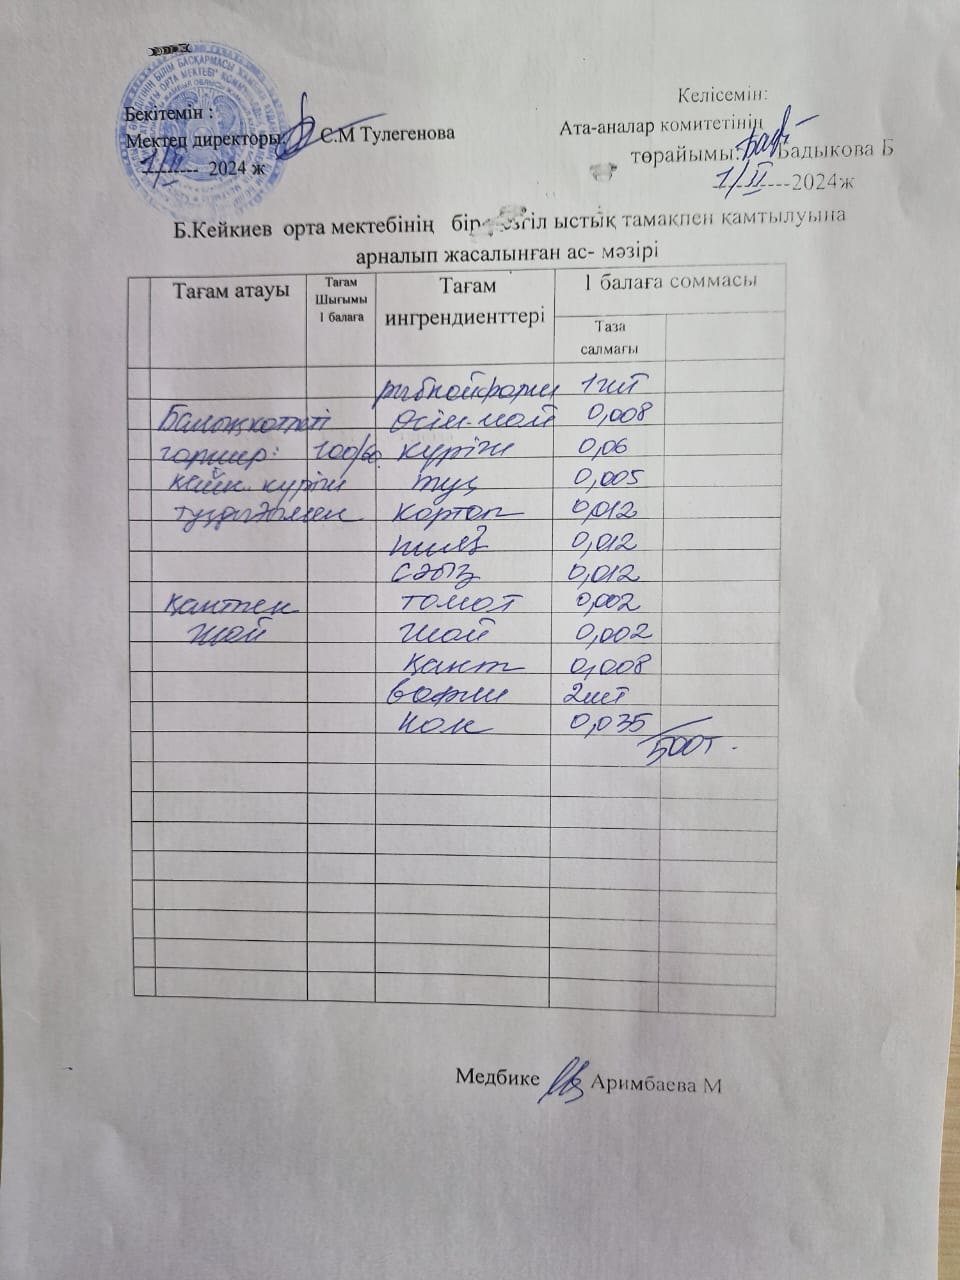 Бекітемін :
Мектеп директоры: С.М Тулегенова
1/II 2024 ж
Келісемін:
Ата-аналар комитетінің
төрайымы: Бадыкова Б
1/II ----2024ж
Б.Кейкиев орта мектебінің ыстық тамақпен қамтылуына
арналып жасалынған ас- мәзірі
Тағам атауы Тағам Шығымы 1 балаға Тағам ингрендиенттері 1 балаға соммасы
Таза салмағы
рыбный фарш 1шт
Балық котлеті өсім-май 0,008
гарнир: 100/60 күріш 0,06
күріш тұз 0,005
тұздығымен картоп 0,012
пияз 0,012
сәбіз 0,012
қантпен томат 0,002
шай шай 0,002
қант 0,008
вафли 2шт
нан 0,035
500т.
Медбике Аримбаева М